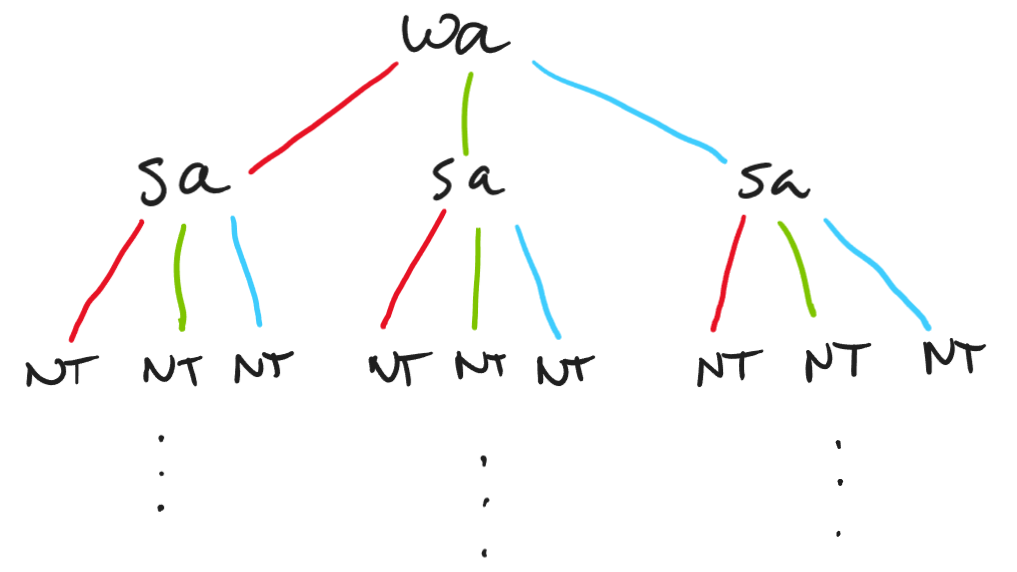 Wa
Sa Sa Sa
NT NT NT NT NT NT NT NT NT